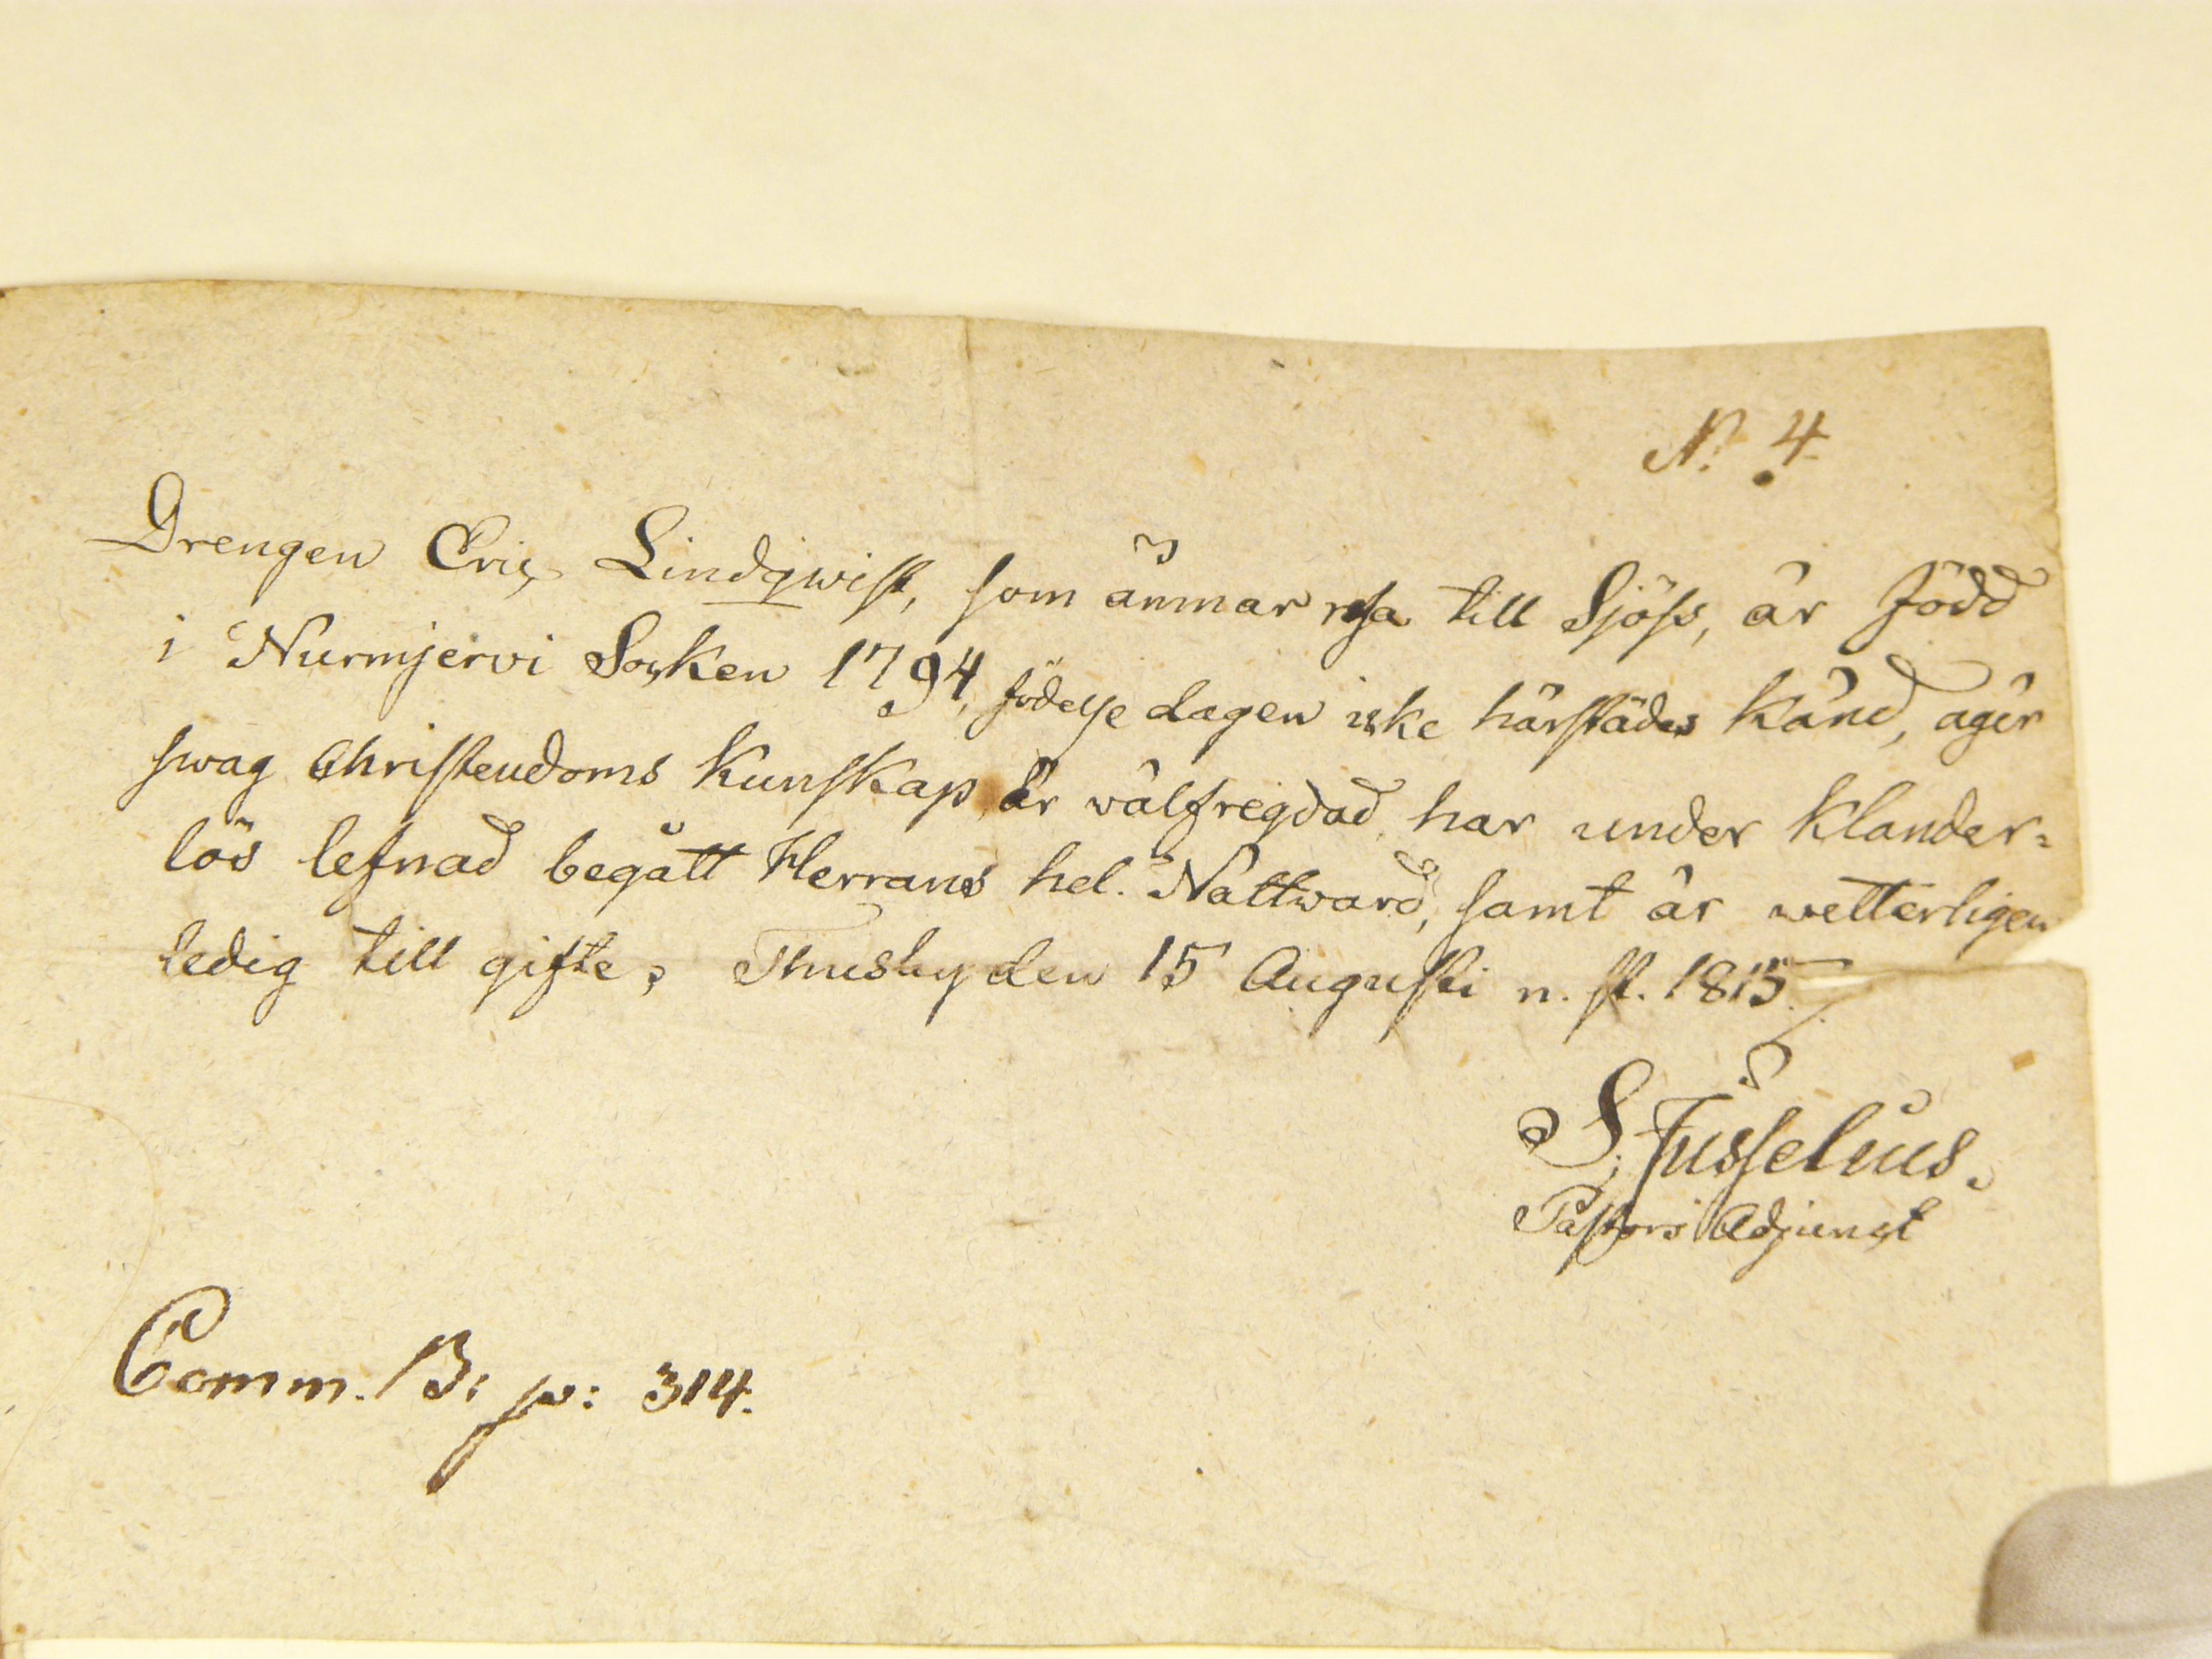 N:o 4.
Drengen Eric Lindqwist, som ämnar resa till Sjöss, är född
i Nurmjervi Socken 1794, födelse dagen icke härstädes känd, äger
swag Christendoms kunskap, är wälfregdad, har under klander=
lös lefnad begått Herrans hel. Nattward, samt är wetterligen
ledig till gifte, Thusby den 15 Augusti n. st. 1815.
S. Fusselius.
Pastors Adjunct
Comm. B: p: 314.